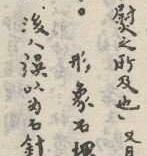 熨之所及也又月
。形象石
後人誤以為石針